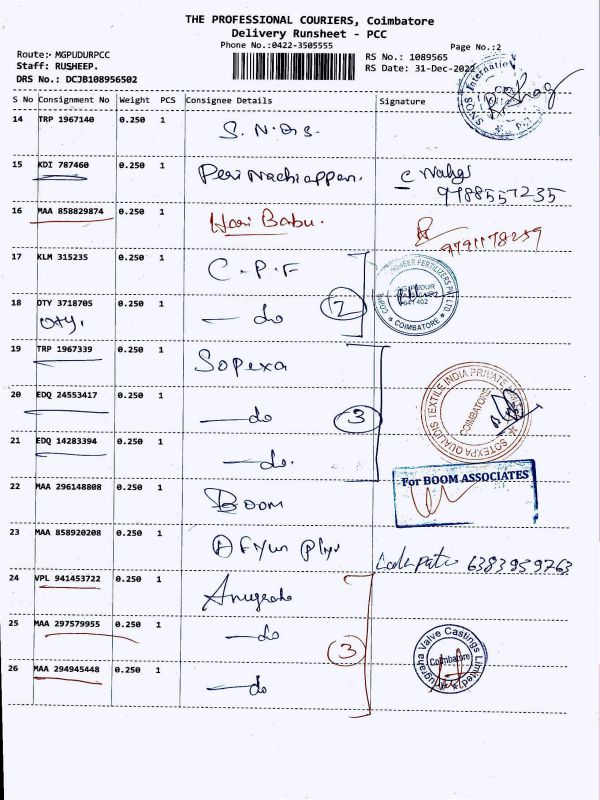 THE PROFESSIONAL COURIERS, Coimbatore
Delivery Runsheet - PCC
Phone No.:0422-3505555
Page No.:2
Route:- MGPUDURPCC
Staff: RUSHEEP.
DRS No.: DCJB108956502
RS No.: 1089565
RS Date: 31-Dec-2022
S No Consignment No Weight PCS Consignee Details Signature
14 TRP 1967140 0.250 1 S.N.Q.S.
15 KDI 787460 0.250 1 Peri Nachiappan.
9788557235
16 MAA 858829874 0.250 1 Hari Babu.
9791178259
17 KLM 315235 0.250 1 C.P.F
18 OTY 3718705 0.250 1 do
OTY.
2
COIMBATORE
19 TRP 1967339 0.250 1 Sopexa
20 EDQ 24553417 0.250 1 do
3
21 EDQ 14283394 0.250 1 do.
SOTEXPA QUALIDIS TEXTILE INDIA PRIVATE
COIMBATORE
22 MAA 296148808 0.250 1 Boom
For BOOM ASSOCIATES
23 MAA 858920208 0.250 1
6383959763
24 VPL 941453722 0.250 1 Anugraha
25 MAA 297579955 0.250 1 do
3
26 MAA 294945448 0.250 1 do
Anugraha Valve Castings Limited
Coimbatore